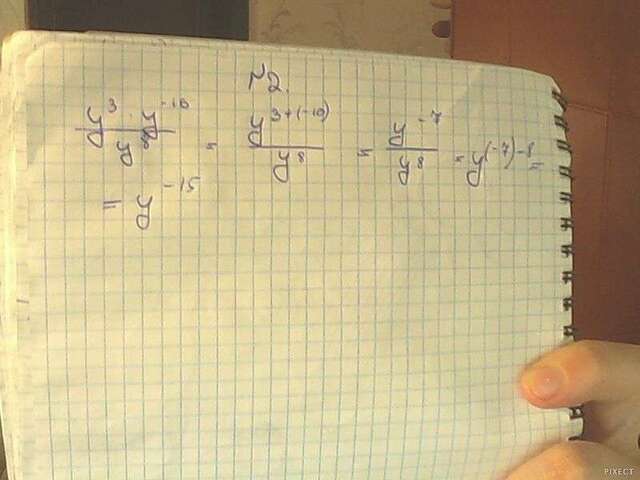 №2.
y³ · y⁻¹⁰ / y⁸ = y³⁺⁽⁻¹⁰⁾ / y⁸ = y⁻⁷ / y⁸ = y⁽⁻⁷⁾⁻⁸ =
= y⁻¹⁵
PIXECT